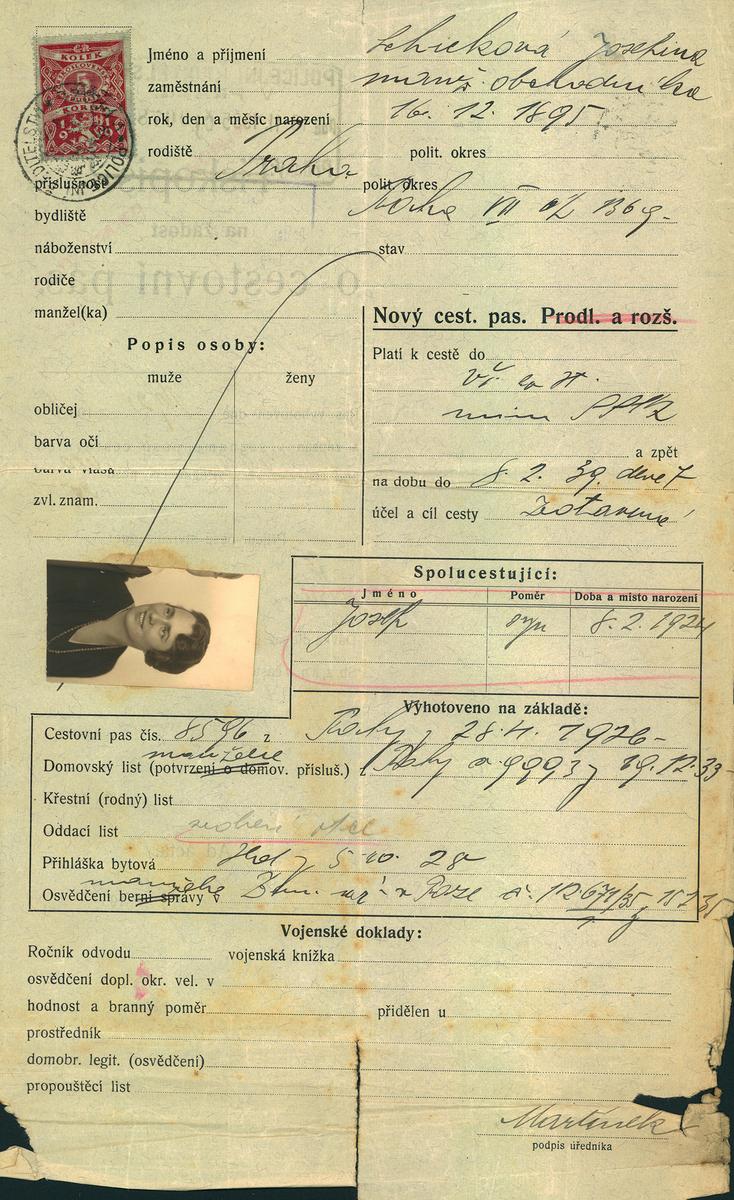 KOLEK
5
KORUN
Jméno a příjmení Schicková Josefina
zaměstnání manž. obchodníka
rok, den a měsíc narození 16. 12. 1895
rodiště Praha polit. okres
příslušnost polit. okres
bydliště Praha VII 1369
náboženství stav
rodiče
manžel(ka)
Nový cest. pas. Prodl. a rozš.
Popis osoby:
muže ženy
obličej
barva očí
barva vlasů
zvl. znam.
Platí k cestě do
mimo
a zpět
na dobu do 8. 2. 39
účel a cíl cesty zotavení
Spolucestující:
Jméno Poměr Doba a místo narození
Josef syn 8. 2. 1924
Vyhotoveno na základě:
Cestovní pas čís. 8596 z Prahy 28. 4. 1926
manžela
Domovský list (potvrzení o domov. přísluš.) z Prahy 9993 19. 12. 33
Křestní (rodný) list
Oddací list
Přihláška bytová 5 10. 28
manžela
Osvědčení berní správy v Praze č. 112.671/35
Vojenské doklady:
Ročník odvodu vojenská knížka
osvědčení dopl. okr. vel. v
hodnost a branný poměr přidělen u
prostředník
domobr. legit. (osvědčení)
propouštěcí list
Martínek
podpis úředníka